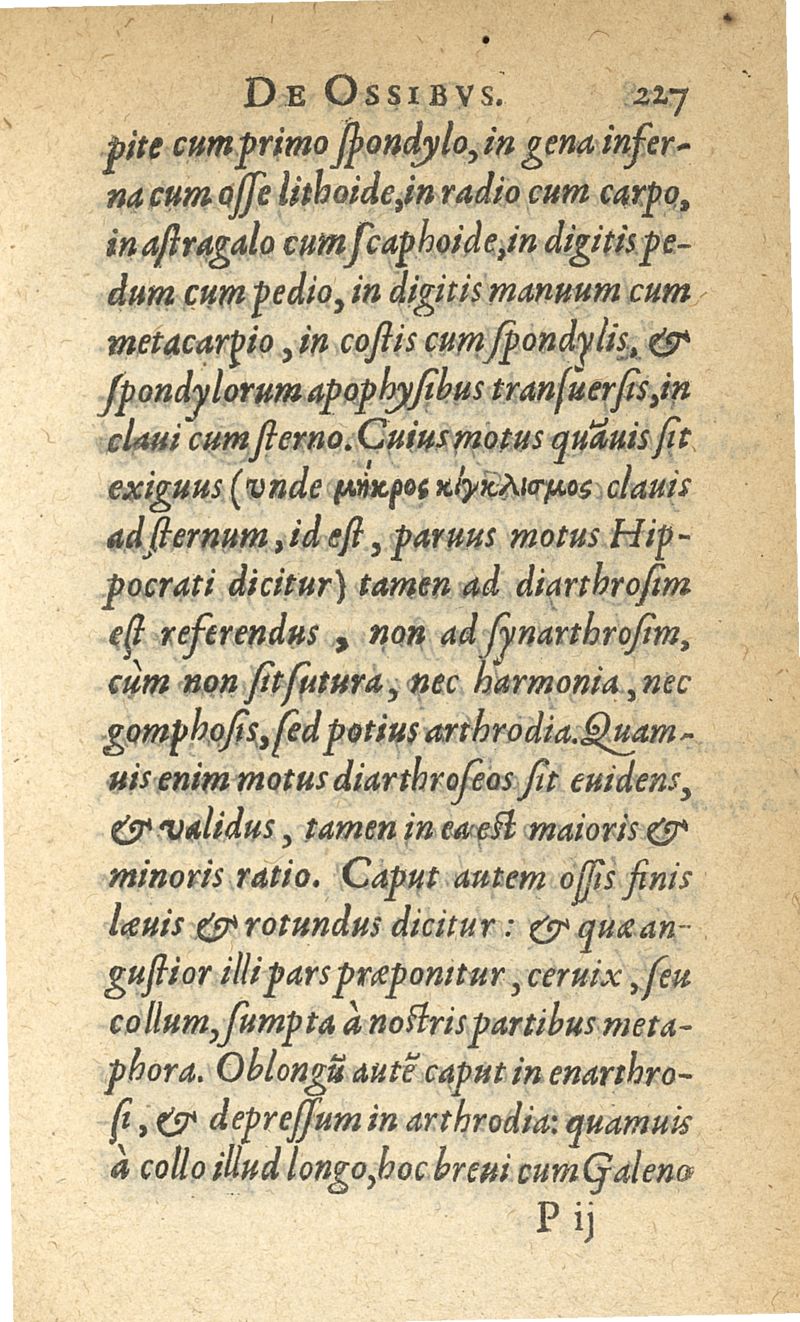 DE OSSIBVS. 227
pite cum primo ſpondylo, in gena infer-
na cum oſſe lithoide, in radio cum carpo,
in aſtragalo cum ſcaphoide, in digitis pe-
dum cum pedio, in digitis manuum cum
metacarpio, in coſtis cum ſpondylis, &
ſpondylorum apophyſibus tranſuerſis, in
claui cum ſterno. Cuius motus quãuis ſit
exiguus (vnde μήκρος κίγκλισμος clauis
ad ſternum, id eſt, paruus motus Hip-
pocrati dicitur) tamen ad diarthroſim
eſt referendus, non ad ſynarthroſim,
cùm non ſit ſutura, nec harmonia, nec
gomphoſis, ſed potius arthrodia. Quam-
uis enim motus diarthroſeos ſit euidens,
& validus, tamen in ea est maioris &
minoris ratio. Caput autem oſſis finis
læuis & rotundus dicitur: & quæ an-
guſtior illi pars præponitur, ceruix, ſeu
collum, ſumpta à nostris partibus meta-
phora. Oblongũ autẽ caput in enarthro-
ſi, & depreſſum in arthrodia: quamuis
à collo illud longo, hoc breui cum Galeno
P ij